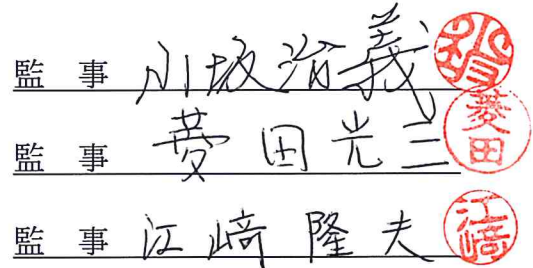 監事 小坂治義
監事 菱田光三 菱田
監事 江﨑隆夫 江﨑